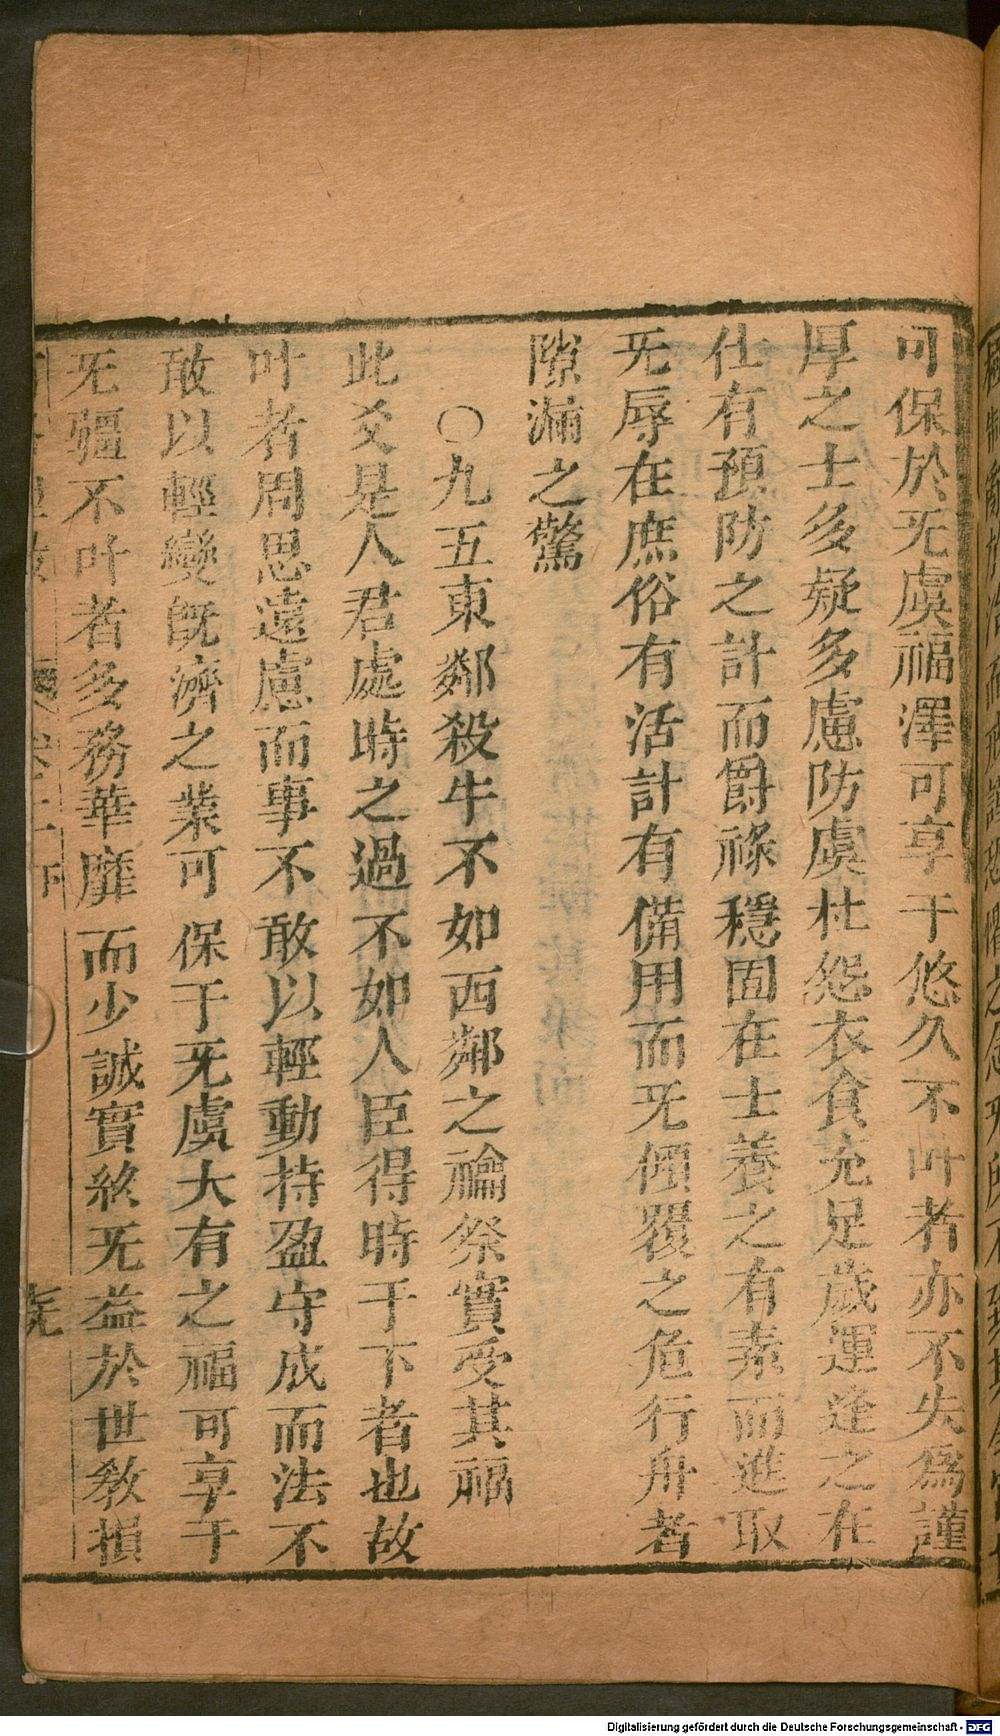 可保於旡虞福澤可享于悠久不叶者亦不失爲謹
厚之士多疑多慮防虞杜怨衣食充足歲運逢之在
仕有預防之計而爵祿穩固在士養之有素而進取
旡辱在庶俗有活計有備用而旡傾覆之危行舟者
隙漏之驚
○九五東鄰殺牛不如西鄰之禴祭實受其福
此爻是人君處時之過不如人臣得時于下者也故
叶者周思遠慮而事不敢以輕動持盈守成而法不
敢以輕變旣濟之業可保于旡虞大有之福可享于
旡疆不叶者多務華靡而少誠實終旡益於世敎損
Digitalisierung gefördert durch die Deutsche Forschungsgemeinschaft - DFG